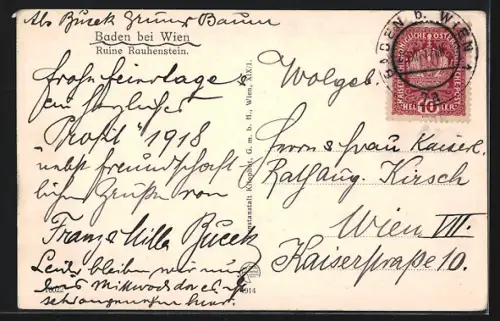 Abs Bucek Grüner Baum
Baden bei Wien
Ruine Rauhenstein.
Frohe Feiertage &
ein herzliches
"Prosit" 1918
nebst freundschaft-
lichen Grüßen von
Franz & Milla Bucek
Leider bleiben wir nur
bis Mittwoch
hier.
Kunstanstalt Kilophot G. m. b. H., Wien, XIX/1.
1914
BADEN b. WIEN 1
KAISERLICHE KÖNIGLICHE ÖSTERREICHISCHE POST
10
HELLER
Wolgeb.
Herrn & Frau Kaiserl.
Rat Aug. Kirsch
Wien VII.
Kaiserstraße 10.